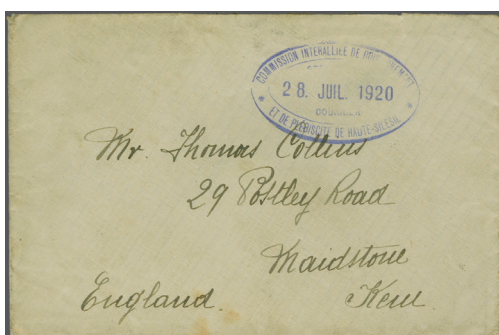 COMMISSION INTERALLIÉE DE GOUVERNEMENT
28. JUIL. 1920
COURRIER
ET DE PLÉBISCITE DE HAUTE-SILÉSIE
Mr. Thomas Collins
29 Postley Road
Maidstone
England. Kent.